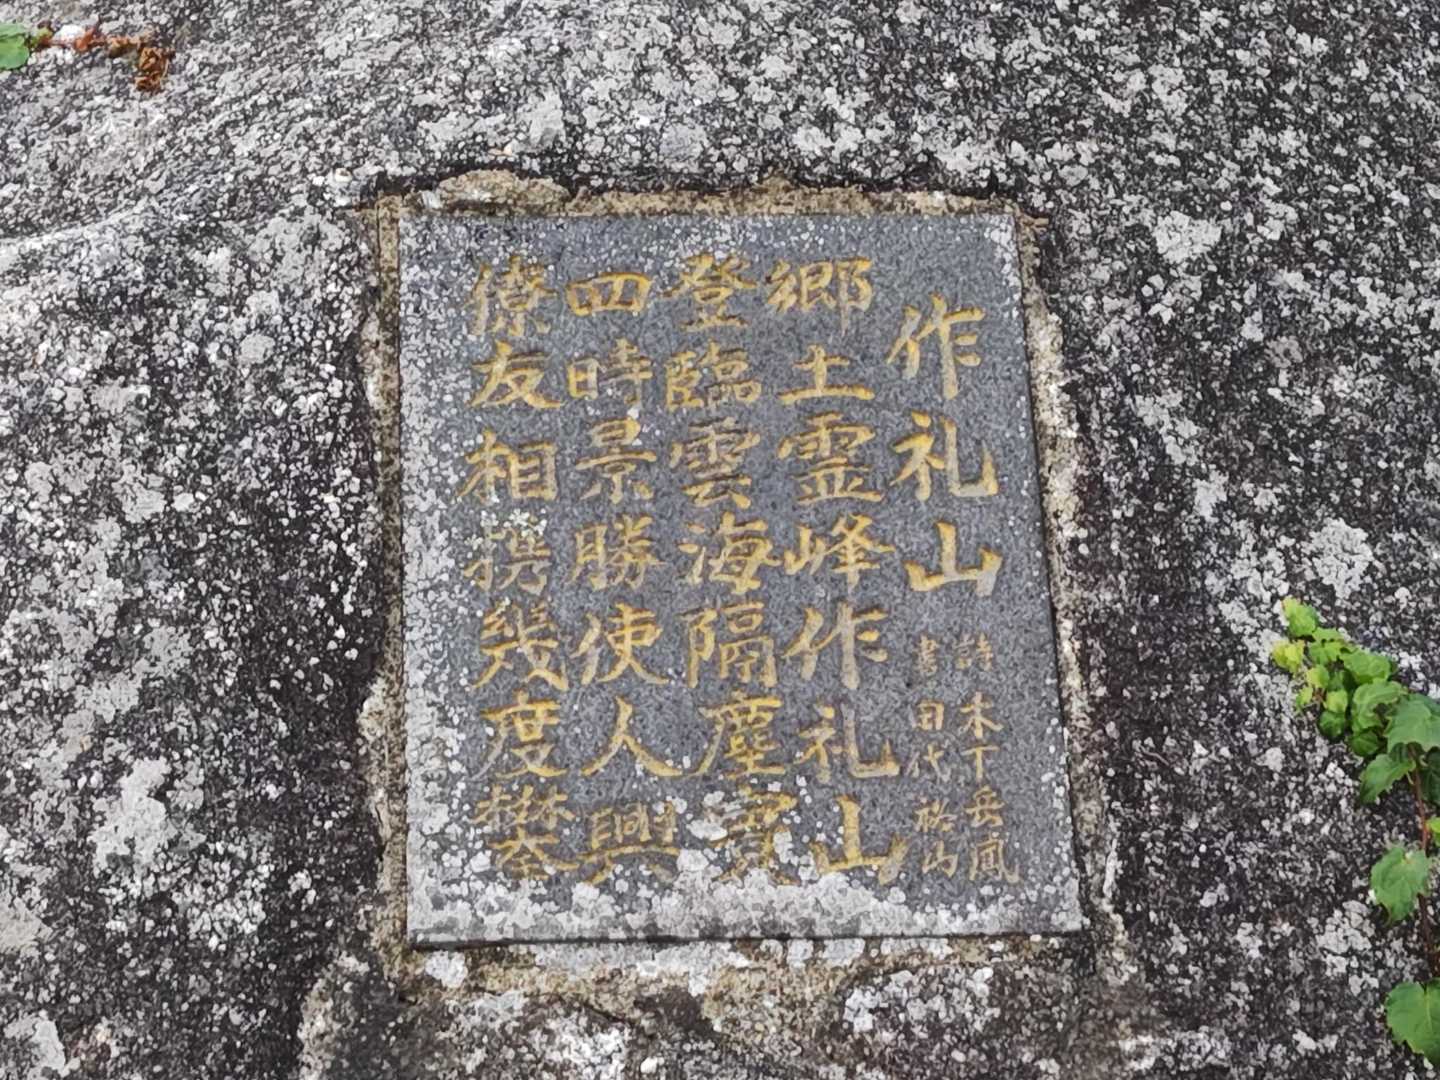 作礼山
詩 木下岳風
書 田代裕山
郷土霊峰作礼山
登臨雲海隔塵寰
四時景勝使人興
僚友相携幾度攀